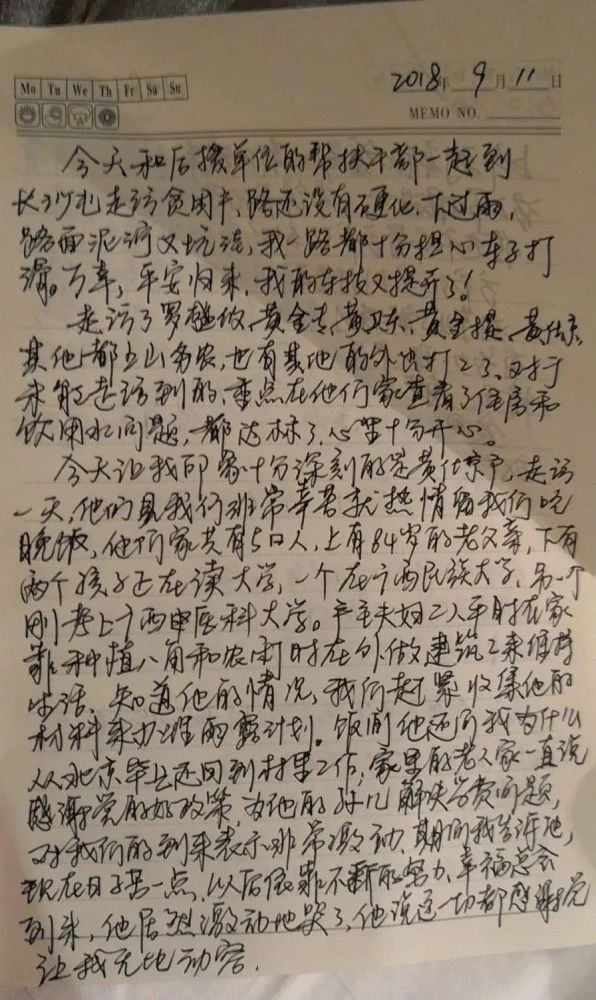 Mo Tu We Th Fr Sa Su
2018年 9月 11日
MEMO NO.
今天和后援单位的帮扶干部一起到
长沙屯走访贫困户、路还没有硬化、下过雨,
路面泥泞又坑洼,我一路都十分担心车子打
滑。万幸,平安归来,我的车技又提升了!
走访了罗 黄金 黄卫东、黄金 黄仕京
其他都上山务农,也有其他的外出打工了、对于
未能走访到的,重点在他们家查看了住房和
饮用水问题,都达标了,心里十分开心。
今天让我印象十分深刻的是黄仕京户,走访
一天,他们见我们非常辛苦就热情留我们吃
晚饭,他们家共有5口人,上有84岁的老父亲,下有
两个孩子正在读大学,一个在广西民族大学,另一个
刚考上广西中医科大学。户主夫妇二人平时在家
靠种植八角和农闲时在外做建筑工来维持
生活、知道他的情况,我们赶紧收集他的
材料来办 雨露计划。饭间他还问我为什么
从北京毕业还回到村里工作,家里的老人家一直说
感谢党的好政策,为他的孙儿解决学费问题,
对我们的到来表示非常激动、期间我告诉他,
现在日子苦一点、以后依靠不断的努力、幸福总会
到来,他居然激动地哭了、他说这一切都感谢党
让我无比动容.